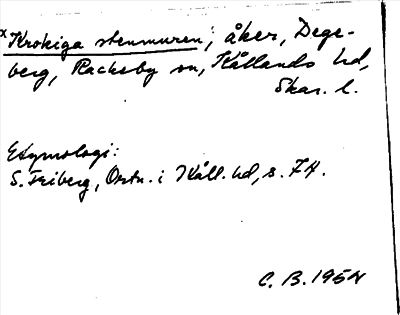 x Krokiga stenmuren; åker, Dege-
berg, Rackeby sn, Kållands hd,
Skar. l.
Etymologi:
S. Friberg, Ortn. i Kåll. hd, s. 74.
C. B. 1954